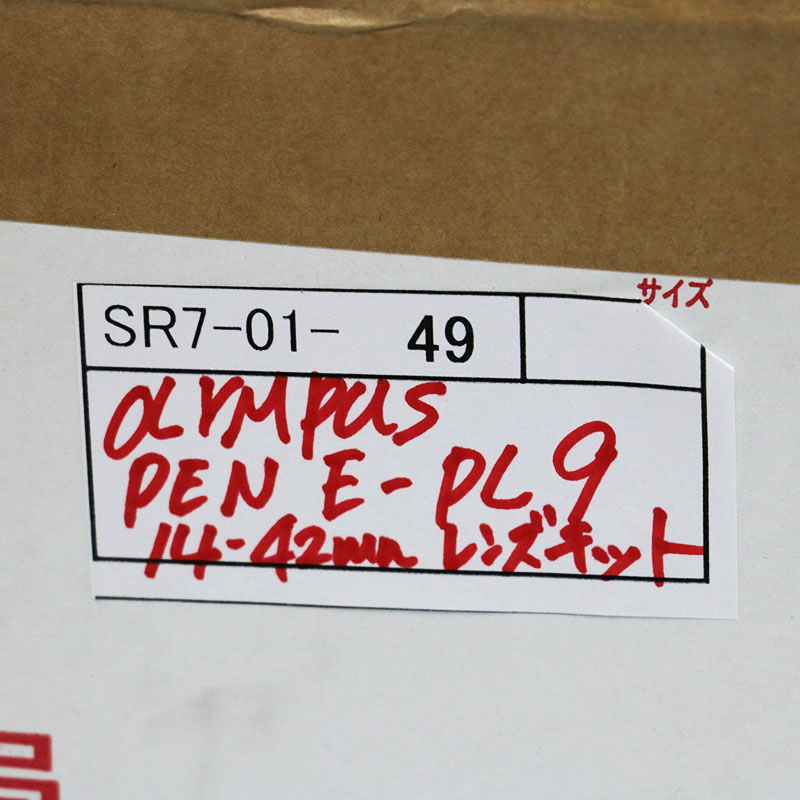 サイズ
SR7-01- 49
OLYMPUS
PEN E-PL9
14-42mm レンズキット